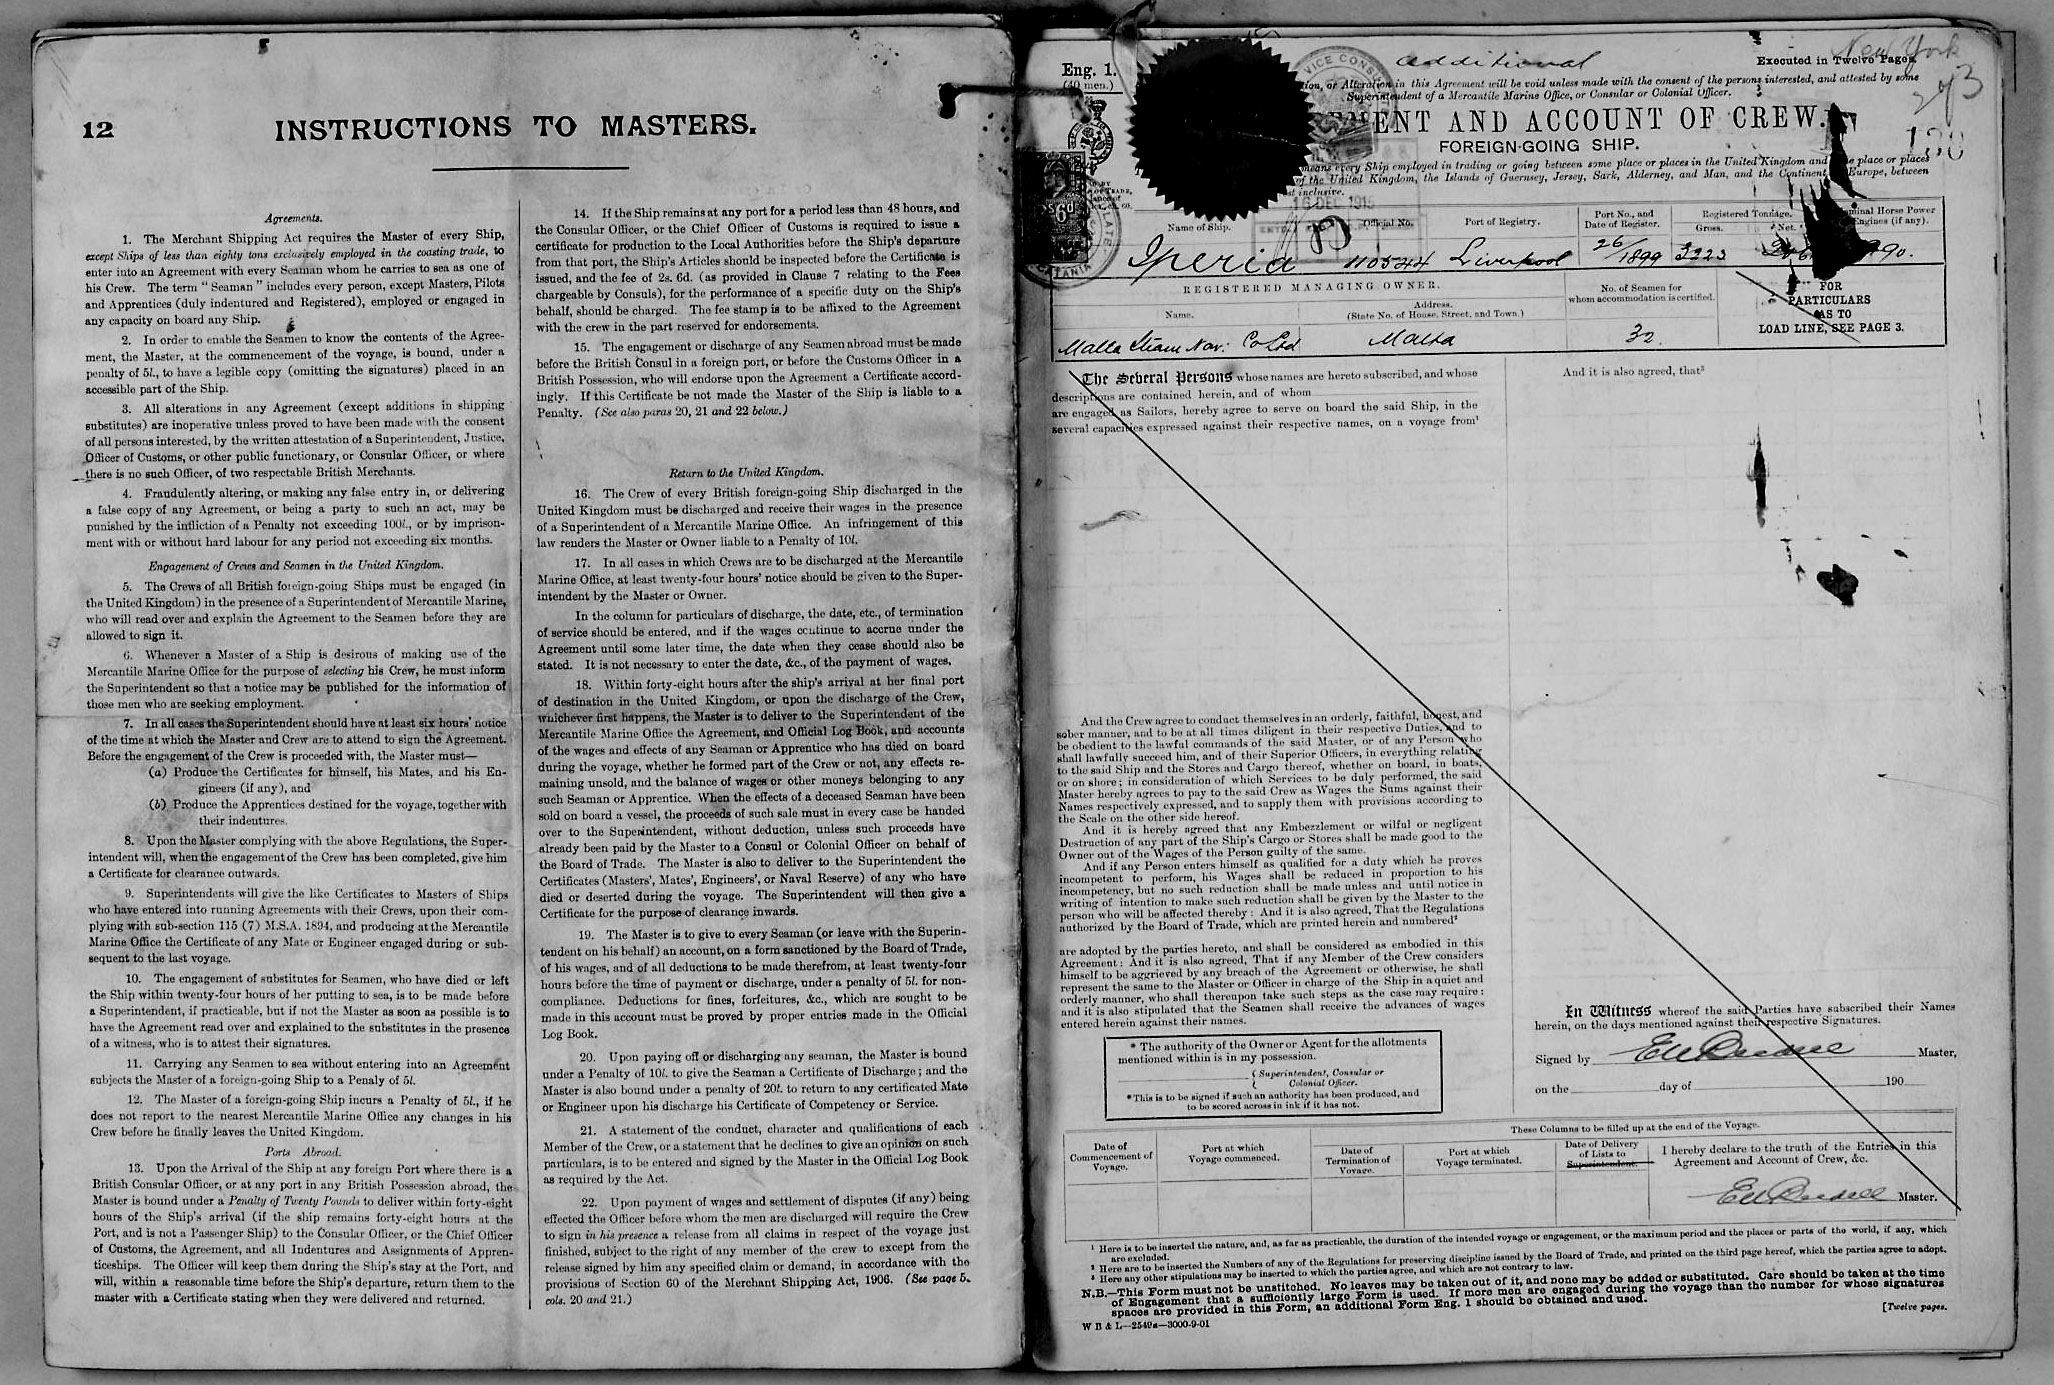 12
INSTRUCTIONS TO MASTERS.
Agreements.
1. The Merchant Shipping Act requires the Master of every Ship,
except Ships of less than eighty tons exclusively employed in the coasting trade, to
enter into an Agreement with every Seaman whom he carries to sea as one of
his Crew. The term "Seaman" includes every person, except Masters, Pilots
and Apprentices (duly indentured and Registered), employed or engaged in
any capacity on board any Ship.
2. In order to enable the Seamen to know the contents of the Agree-
ment, the Master, at the commencement of the voyage, is bound, under a
penalty of 5l., to have a legible copy (omitting the signatures) placed in an
accessible part of the Ship.
3. All alterations in any Agreement (except additions in shipping
substitutes) are inoperative unless proved to have been made with the consent
of all persons interested, by the written attestation of a Superintendent, Justice,
Officer of Customs, or other public functionary, or Consular Officer, or where
there is no such Officer, of two respectable British Merchants.
4. Fraudulently altering, or making any false entry in, or delivering
a false copy of any Agreement, or being a party to such an act, may be
punished by the infliction of a Penalty not exceeding 100l., or by imprison-
ment with or without hard labour for any period not exceeding six months.
Engagement of Crews and Seamen in the United Kingdom.
5. The Crews of all British foreign-going Ships must be engaged (in
the United Kingdom) in the presence of a Superintendent of Mercantile Marine,
who will read over and explain the Agreement to the Seamen before they are
allowed to sign it.
6. Whenever a Master of a Ship is desirous of making use of the
Mercantile Marine Office for the purpose of selecting his Crew, he must inform
the Superintendent so that a notice may be published for the information of
those men who are seeking employment.
7. In all cases the Superintendent should have at least six hours' notice
of the time at which the Master and Crew are to attend to sign the Agreement.
Before the engagement of the Crew is proceeded with, the Master must—
(a) Produce the Certificates for himself, his Mates, and his En-
gineers (if any), and
(b) Produce the Apprentices destined for the voyage, together with
their indentures.
8. Upon the Master complying with the above Regulations, the Super-
intendent will, when the engagement of the Crew has been completed, give him
a Certificate for clearance outwards.
9. Superintendents will give the like Certificates to Masters of Ships
who have entered into running Agreements with their Crews, upon their com-
plying with sub-section 115 (7) M.S.A. 1894, and producing at the Mercantile
Marine Office the Certificate of any Mate or Engineer engaged during or sub-
sequent to the last voyage.
10. The engagement of substitutes for Seamen, who have died or left
the Ship within twenty-four hours of her putting to sea, is to be made before
a Superintendent, if practicable, but if not the Master as soon as possible is to
have the Agreement read over and explained to the substitutes in the presence
of a witness, who is to attest their signatures.
11. Carrying any Seamen to sea without entering into an Agreement
subjects the Master of a foreign-going Ship to a Penaly of 5l.
12. The Master of a foreign-going Ship incurs a Penalty of 5l., if he
does not report to the nearest Mercantile Marine Office any changes in his
Crew before he finally leaves the United Kingdom.
Ports Abroad.
13. Upon the Arrival of the Ship at any foreign Port where there is a
British Consular Officer, or at any port in any British Possession abroad, the
Master is bound under a Penalty of Twenty Pounds to deliver within forty-eight
hours of the Ship's arrival (if the ship remains forty-eight hours at the
Port, and is not a Passenger Ship) to the Consular Officer, or the Chief Officer
of Customs, the Agreement, and all Indentures and Assignments of Appren-
ticeships. The Officer will keep them during the Ship's stay at the Port, and
will, within a reasonable time before the Ship's departure, return them to the
master with a Certificate stating when they were delivered and returned.
14. If the Ship remains at any port for a period less than 48 hours, and
the Consular Officer, or the Chief Officer of Customs is required to issue a
certificate for production to the Local Authorities before the Ship's departure
from that port, the Ship's Articles should be inspected before the Certificate is
issued, and the fee of 2s. 6d. (as provided in Clause 7 relating to the Fees
chargeable by Consuls), for the performance of a specific duty on the Ship's
behalf, should be charged. The fee stamp is to be affixed to the Agreement
with the crew in the part reserved for endorsements.
15. The engagement or discharge of any Seamen abroad must be made
before the British Consul in a foreign port, or before the Customs Officer in a
British Possession, who will endorse upon the Agreement a Certificate accord-
ingly. If this Certificate be not made the Master of the Ship is liable to a
Penalty. (See also paras 20, 21 and 22 below.)
Return to the United Kingdom.
16. The Crew of every British foreign-going Ship discharged in the
United Kingdom must be discharged and receive their wages in the presence
of a Superintendent of a Mercantile Marine Office. An infringement of this
law renders the Master or Owner liable to a Penalty of 10l.
17. In all cases in which Crews are to be discharged at the Mercantile
Marine Office, at least twenty-four hours' notice should be given to the Super-
intendent by the Master or Owner.
In the column for particulars of discharge, the date, etc., of termination
of service should be entered, and if the wages continue to accrue under the
Agreement until some later time, the date when they cease should also be
stated. It is not necessary to enter the date, &c., of the payment of wages.
18. Within forty-eight hours after the ship's arrival at her final port
of destination in the United Kingdom, or upon the discharge of the Crew,
whichever first happens, the Master is to deliver to the Superintendent of the
Mercantile Marine Office the Agreement, and Official Log Book, and accounts
of the wages and effects of any Seaman or Apprentice who has died on board
during the voyage, whether he formed part of the Crew or not, any effects re-
maining unsold, and the balance of wages or other moneys belonging to any
such Seaman or Apprentice. When the effects of a deceased Seaman have been
sold on board a vessel, the proceeds of such sale must in every case be handed
over to the Superintendent, without deduction, unless such proceeds have
already been paid by the Master to a Consul or Colonial Officer on behalf of
the Board of Trade. The Master is also to deliver to the Superintendent the
Certificates (Masters', Mates', Engineers', or Naval Reserve) of any who have
died or deserted during the voyage. The Superintendent will then give a
Certificate for the purpose of clearance inwards.
19. The Master is to give to every Seaman (or leave with the Superin-
tendent on his behalf) an account, on a form sanctioned by the Board of Trade,
of his wages, and of all deductions to be made therefrom, at least twenty-four
hours before the time of payment or discharge, under a penalty of 5l. for non-
compliance. Deductions for fines, forfeitures, &c., which are sought to be
made in this account must be proved by proper entries made in the Official
Log Book.
20. Upon paying off or discharging any seaman, the Master is bound
under a Penalty of 10l. to give the Seaman a Certificate of Discharge; and the
Master is also bound under a penalty of 20l. to return to any certificated Mate
or Engineer upon his discharge his Certificate of Competency or Service.
21. A statement of the conduct, character and qualifications of each
Member of the Crew, or a statement that he declines to give an opinion on such
particulars, is to be entered and signed by the Master in the Official Log Book
as required by the Act.
22. Upon payment of wages and settlement of disputes (if any) being
effected the Officer before whom the men are discharged will require the Crew
to sign in his presence a release from all claims in respect of the voyage just
finished, subject to the right of any member of the crew to except from the
release signed by him any specified claim or demand, in accordance with the
provisions of Section 60 of the Merchant Shipping Act, 1906. (See page 5,
cols. 20 and 21.)
Eng. 1.
(40 men.)
VICE CONS
additional
Executed in Twelve Pages.
New York
or Alteration in this Agreement will be void unless made with the consent of the persons interested, and attested by some
Superintendent of a Mercantile Marine Office, or Consular or Colonial Officer.
EMENT AND ACCOUNT OF CREW.
FOREIGN-GOING SHIP.
130
means every Ship employed in trading or going between some place or places in the United Kingdom and place or places
of the United Kingdom, the Islands of Guernsey, Jersey, Sark, Alderney, and Man, and the Continent Europe, between
inclusive.
16 DEC 1915
CATANIA
Name of Ship.
Official No.
Port of Registry.
Port No., and
Date of Register.
Registered Tonnage.
Gross.
Net.
Nominal Horse Power
Engines (if any).
Iperia
110544
Liverpool
26/1899
3223
90.
REGISTERED MANAGING OWNER.
Name.
Address.
(State No. of House, Street, and Town.)
No. of Seamen for
whom accommodation is certified.
FOR
PARTICULARS
AS TO
LOAD LINE, SEE PAGE 3.
Malta Steam Nav: Co Ltd
Malta
32.
The Several Persons whose names are hereto subscribed, and whose
descriptions are contained herein, and of whom
are engaged as Sailors, hereby agree to serve on board the said Ship, in the
several capacities expressed against their respective names, on a voyage from¹
And it is also agreed, that³
And the Crew agree to conduct themselves in an orderly, faithful, honest, and
sober manner, and to be at all times diligent in their respective Duties, and to
be obedient to the lawful commands of the said Master, or of any Person who
shall lawfully succeed him, and of their Superior Officers, in everything relating
to the said Ship and the Stores and Cargo thereof, whether on board, in boats,
or on shore; in consideration of which Services to be duly performed, the said
Master hereby agrees to pay to the said Crew as Wages the Sums against their
Names respectively expressed, and to supply them with provisions according to
the Scale on the other side hereof.
And it is hereby agreed that any Embezzlement or wilful or negligent
Destruction of any part of the Ship's Cargo or Stores shall be made good to the
Owner out of the Wages of the Person guilty of the same.
And if any Person enters himself as qualified for a duty which he proves
incompetent to perform, his Wages shall be reduced in proportion to his
incompetency, but no such reduction shall be made unless and until notice in
writing of intention to make such reduction shall be given by the Master to the
person who will be affected thereby: And it is also agreed, That the Regulations
authorized by the Board of Trade, which are printed herein and numbered²
are adopted by the parties hereto, and shall be considered as embodied in this
Agreement: And it is also agreed, That if any Member of the Crew considers
himself to be aggrieved by any breach of the Agreement or otherwise, he shall
represent the same to the Master or Officer in charge of the Ship in a quiet and
orderly manner, who shall thereupon take such steps as the case may require:
and it is also stipulated that the Seamen shall receive the advances of wages
entered herein against their names.
* The authority of the Owner or Agent for the allotments
mentioned within is in my possession.
Superintendent, Consular or
Colonial Officer.
* This is to be signed if such an authority has been produced, and
to be scored across in ink if it has not.
In Witness whereof the said Parties have subscribed their Names
herein, on the days mentioned against their respective Signatures.
Signed by Master,
on the day of 190
These Columns to be filled up at the end of the Voyage.
Date of
Commencement of
Voyage.
Port at which
Voyage commenced.
Date of
Termination of
Voyage.
Port at which
Voyage terminated.
Date of Delivery
of Lists to
Superintendent.
I hereby declare to the truth of the Entries in this
Agreement and Account of Crew, &c.
Master.
¹ Here is to be inserted the nature, and, as far as practicable, the duration of the intended voyage or engagement, or the maximum period and the places or parts of the world, if any, which
are excluded.
² Here are to be inserted the Numbers of any of the Regulations for preserving discipline issued by the Board of Trade, and printed on the third page hereof, which the parties agree to adopt.
³ Here any other stipulations may be inserted to which the parties agree, and which are not contrary to law.
N.B.—This Form must not be unstitched. No leaves may be taken out of it, and none may be added or substituted. Care should be taken at the time
of Engagement that a sufficiently large Form is used. If more men are engaged during the voyage than the number for whose signatures
spaces are provided in this Form, an additional Form Eng. 1 should be obtained and used.
[Twelve pages.
W B & L—2549a—3000-9-01